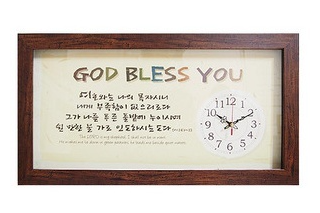 GOD BLESS YOU
여호와는 나의 목자시니
내게 부족함이 없으리로다
그가 나를 푸른 풀밭에 누이시며
쉴 만한 물 가로 인도하시는도다
The LORD is my shepherd, I shall not be in want.
He makes me lie down in green pastures, he leads me beside quiet waters
12
11 1
10 2
9 3
8 4
7 5
6